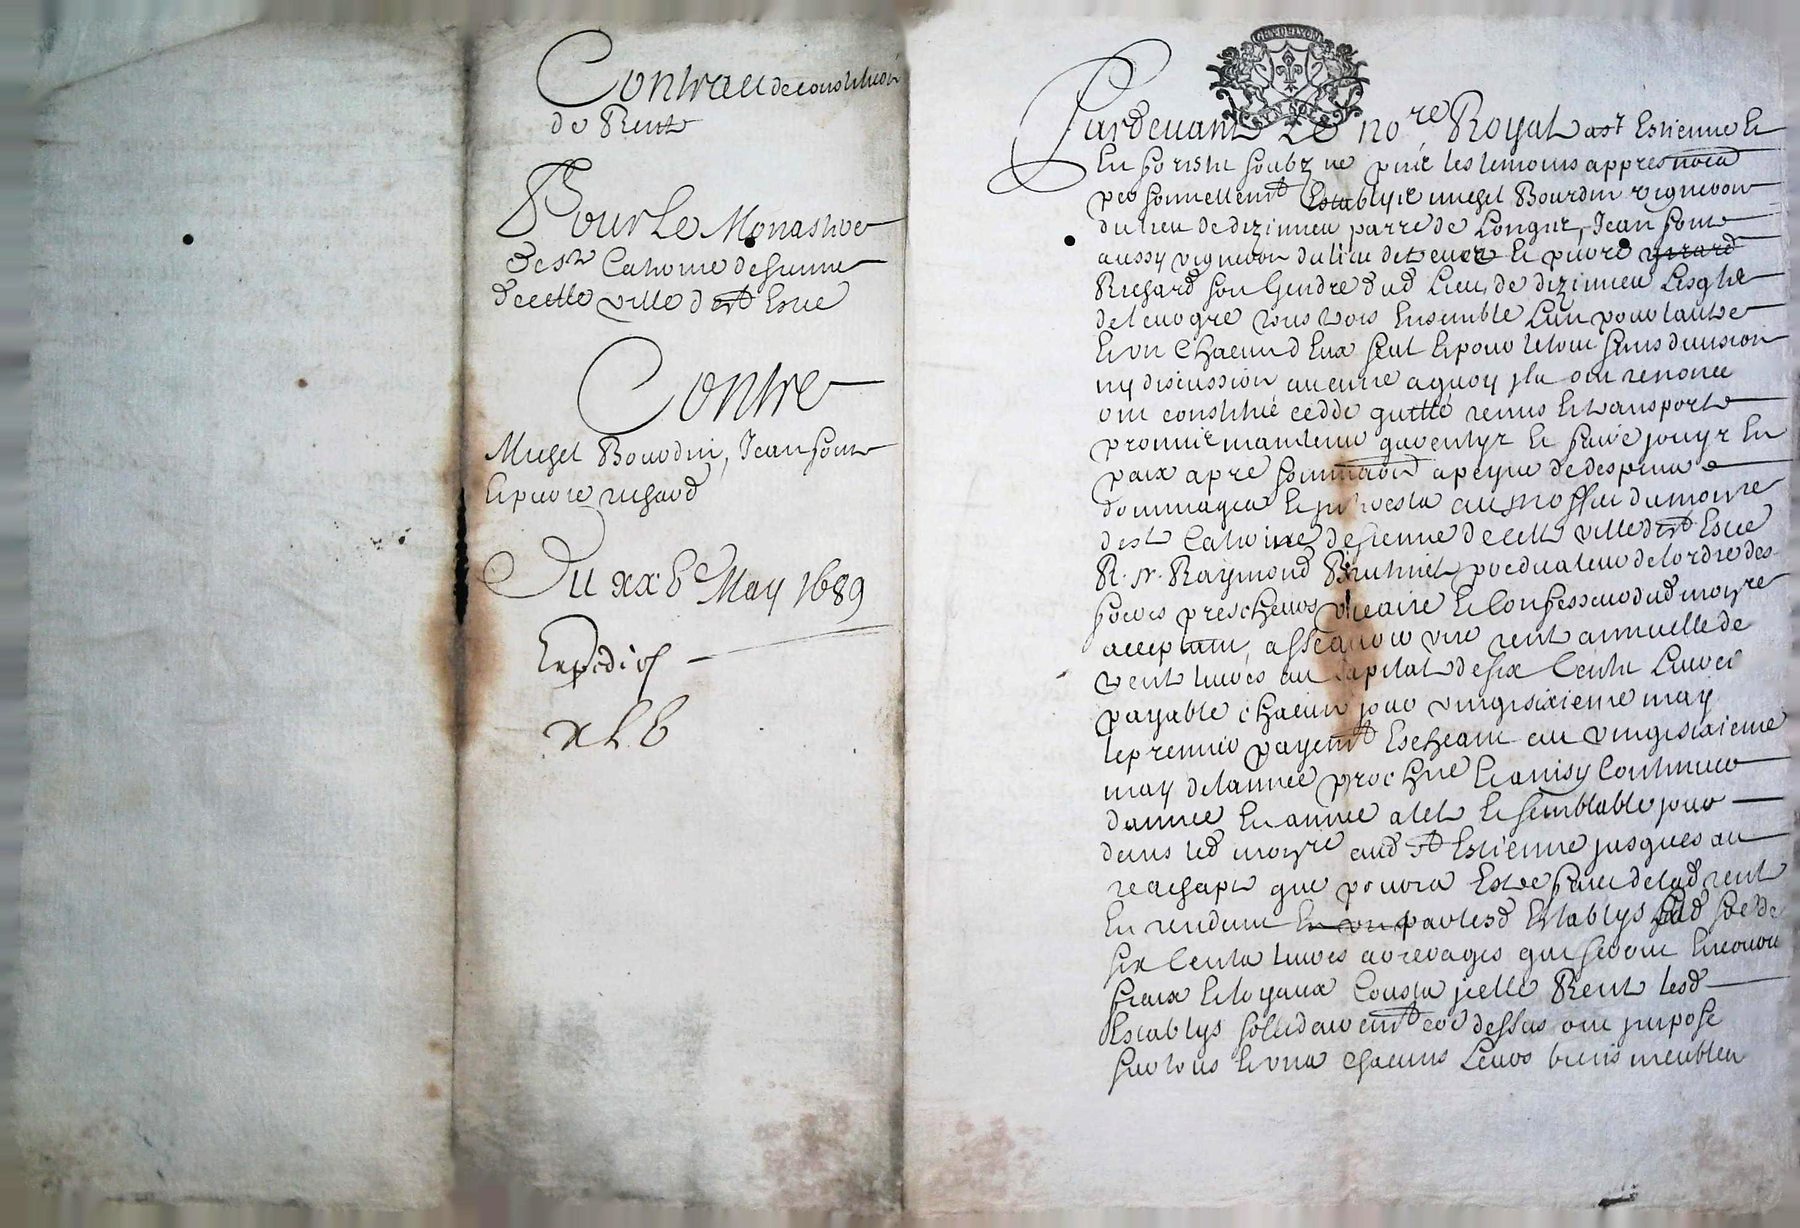 Contract de constitution
de Rente
Pour Le Monastere
de ste Catherine de sienne
de cette ville de st Estne
Contre
Michel Bourdin, Jean font
et pierre richard
Du xx6e May 1689
Expedié
GEN DE LYON
Pardevant Le nore Royal a st Estienne et
En forestz soubz ne les temoins appres nommes
personnellemt Establyz michel Bourdin vigneron
du lieu de dizimieu parre de Longes, Jean font
aussy vigneron du lieu de et pierre girard
Richard son Gendre dud Lieu de dizimieu
tous trois Ensemble L'un pour l'autre
et un chacun d'Eux seul et pour le tout sans division
ny discussion aucune a quoy ils ont renoncé
ont constitué ceddé quitté remis et transporté
promis maintenir garentyr et faire jouyr En
paix apre sommation a peyne de despens
dommages et au du monre
de ste Catherine de sienne de cette ville de st Estne
R. P. Raymond de l'ordre des
freres prescheurs vicaire et Confesseur dud monre
acceptant, assçavoir une rente annuelle de
trente livres au capital de six Cents Livres
payable chacun jour vingtsixieme may
le premier payemt Escheant au vingtsixieme
may de l'année prochne Et ainsy Continuer
d'année En année a tel et semblable jour
dans led monre aud st Estienne jusques au
reachapt que pourra Estre faict de lad rente
En rendant En un par lesd Establys lad sme de
six Cents livres arrerages que seront Encouru
fraix et loyaux Cousts jcelle Rente lesd
Establys sollidairemt come dessus ont jmposé
sur tous et uns chacuns Leurs biens meubles